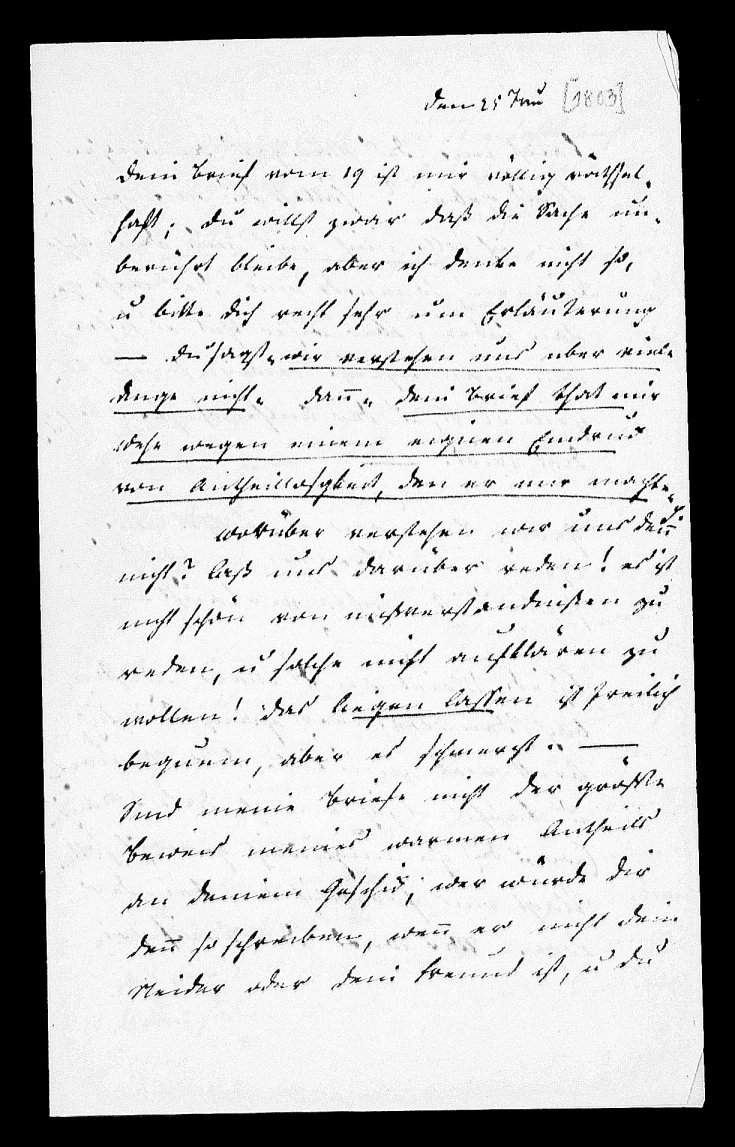 den 25 Jan [1803]
Dein Brief vom 19 ist mir völlig räthsel-
haft; du willst zwar daß die Sache un-
berührt bleibe, aber ich denke nicht so,
u bitte dich recht sehr um Erläuterung
— du sagst „wir verstehen uns über viele
Dinge nicht. dann „dein Brief that mir
Wehe wegen einem eignen Eindruck
von Antheillosigkeit, den er mir machte."
worüber verstehen wir uns den̄
nicht? laß uns darüber reden! es ist
nicht schön von misverständnißen zu
reden, u solche nicht aufklären zu
wollen! das liegen lassen ist freilich
bequem, aber es schmerzt. —
Sind meine Briefe nicht der größte
Beweis meines warmen Antheils
an deinem Geschick; wer würde dir
den̄ so schreiben, wen̄ er nicht dein
Neider oder dein Freund ist, u du